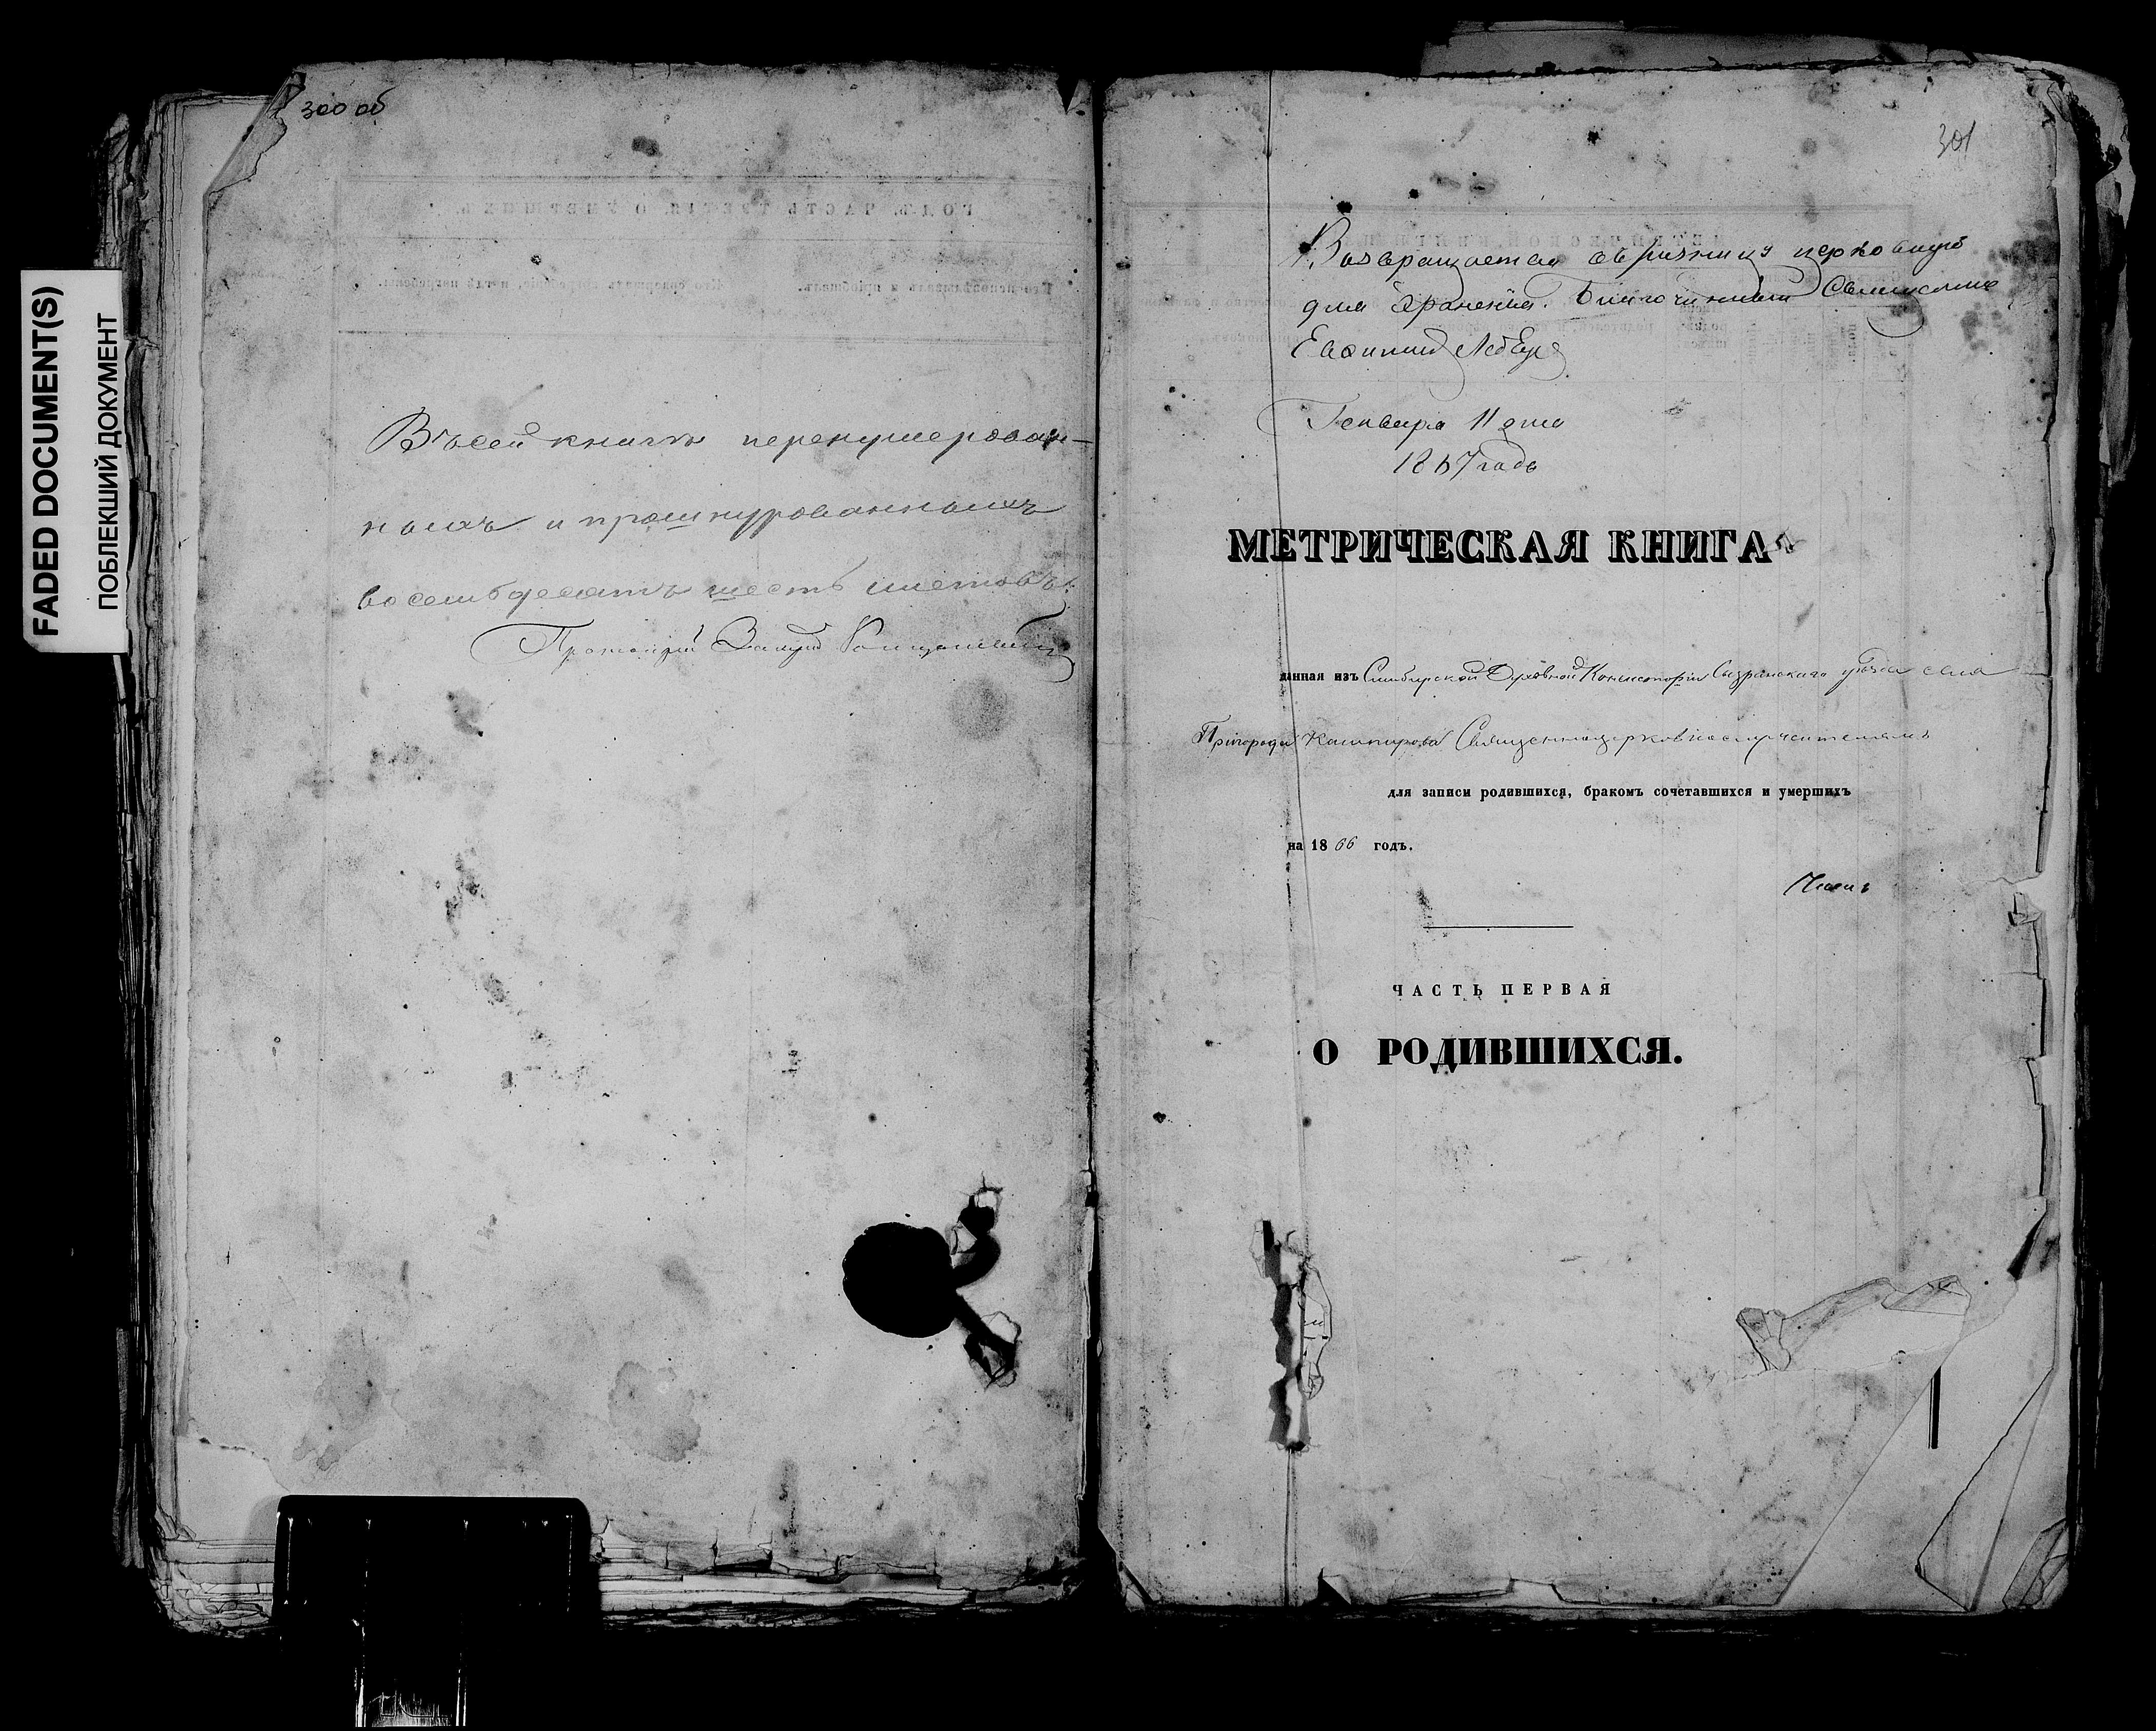 FADED DOCUMENT(S)
ПОБЛЕКШИЙ ДОКУМЕНТ
300 об
Въ сей книгѣ перенумерован-
ныхъ и прошнурованныхъ
восемьдесятъ шесть листовъ.
Протоіерей
301
Возвращается въ ризницу церковную
для храненія. Благочинный Священникъ
Генваря 11 дня
1867 года
МЕТРИЧЕСКАЯ КНИГА
данная изъ Симбирской Духовной Консисторіи Сызранскаго уѣзда села
Пригорода Кашпирова Священноцерковнослужителямъ
для записи родившихся, бракомъ сочетавшихся и умершихъ
на 1866 годъ.
ЧАСТЬ ПЕРВАЯ
О РОДИВШИХСЯ.